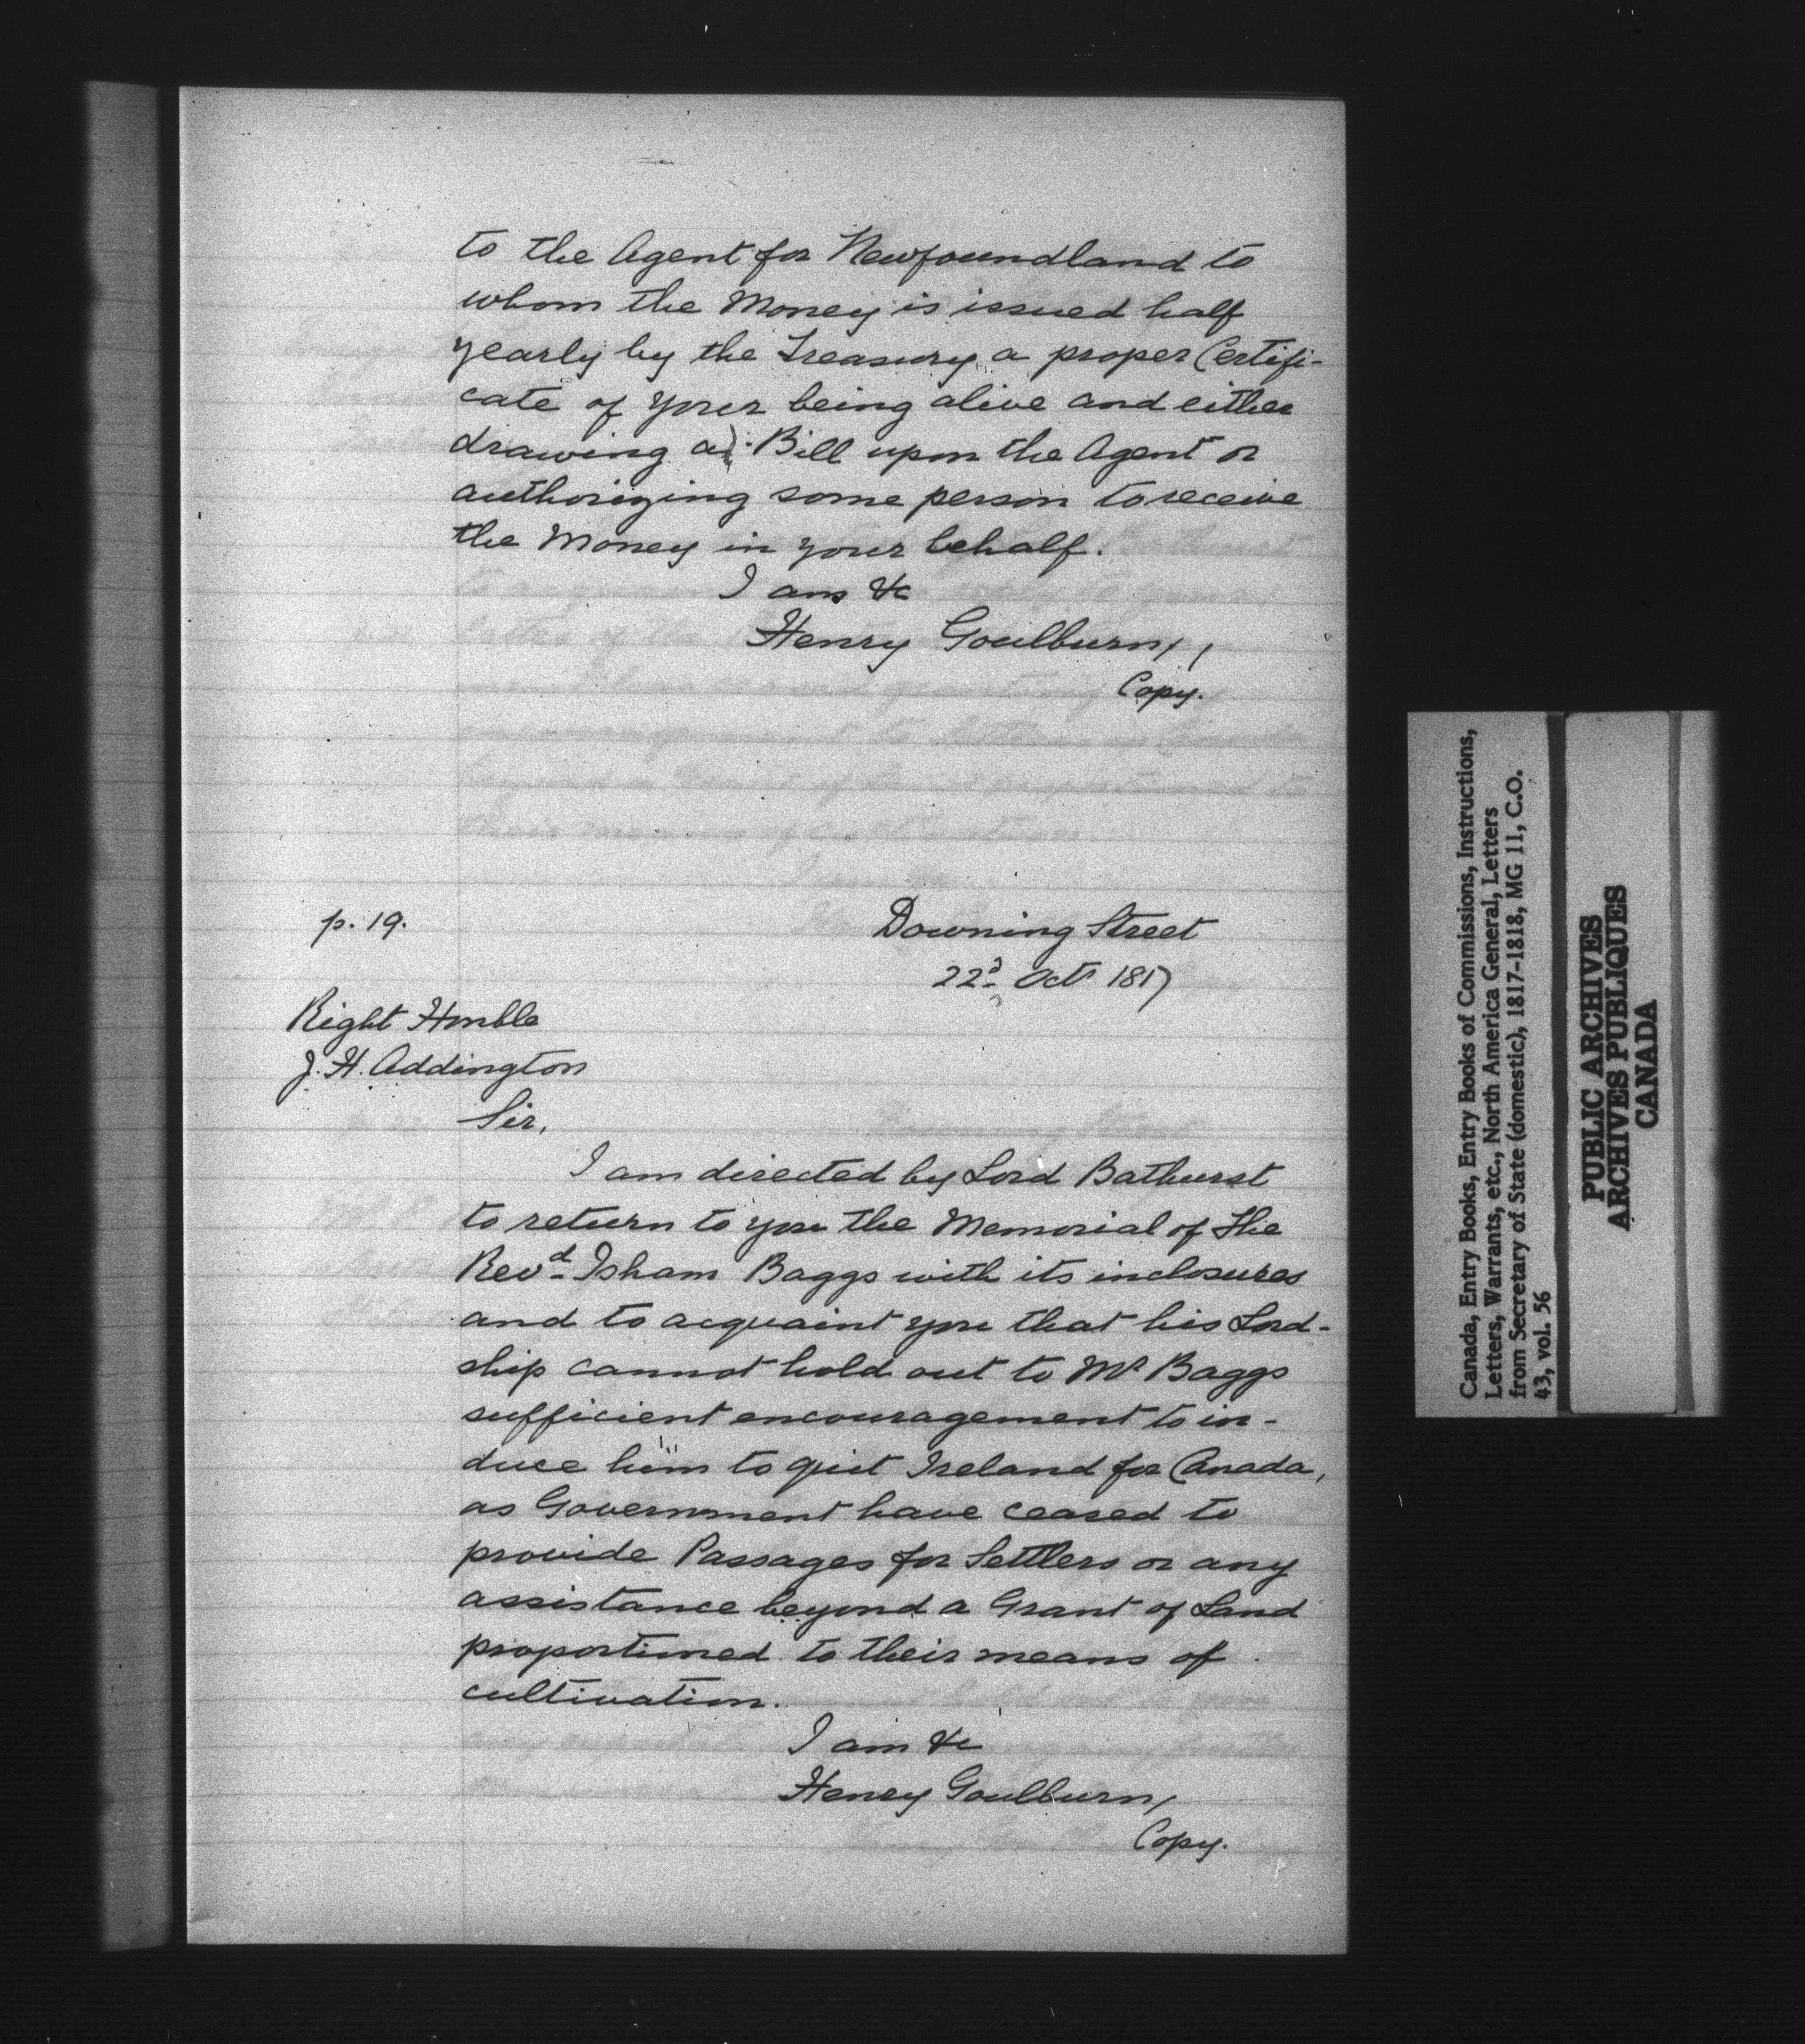 to the Agent for Newfoundland to
whom the Money is issued half
yearly by the Treasury a proper Certifi-
cate of your being alive and either
drawing a Bill upon the Agent or
authorizing some person to receive
the Money in your behalf.
I am &c
Henry Goulburn,
Copy.
p. 19.
Downing Street
22d Octr 1817
Right Honble
J. H. Addington
Sir,
I am directed by Lord Bathurst
to return to you the Memorial of the
Revd Isham Baggs with its inclosures
and to acquaint you that his Lord-
ship cannot hold out to Mr Baggs
sufficient encouragement to in-
duce him to quit Ireland for Canada,
as Government have ceased to
provide Passages for Settlers or any
assistance beyond a Grant of Land
proportioned to their means of
cultivation.
I am &c
Henry Goulburn,
Copy.
Canada, Entry Books, Entry Books of Commissions, Instructions,
Letters, Warrants, etc., North America General, Letters
from Secretary of State (domestic), 1817-1818, MG 11, C.O.
43, vol. 56
PUBLIC ARCHIVES
ARCHIVES PUBLIQUES
CANADA